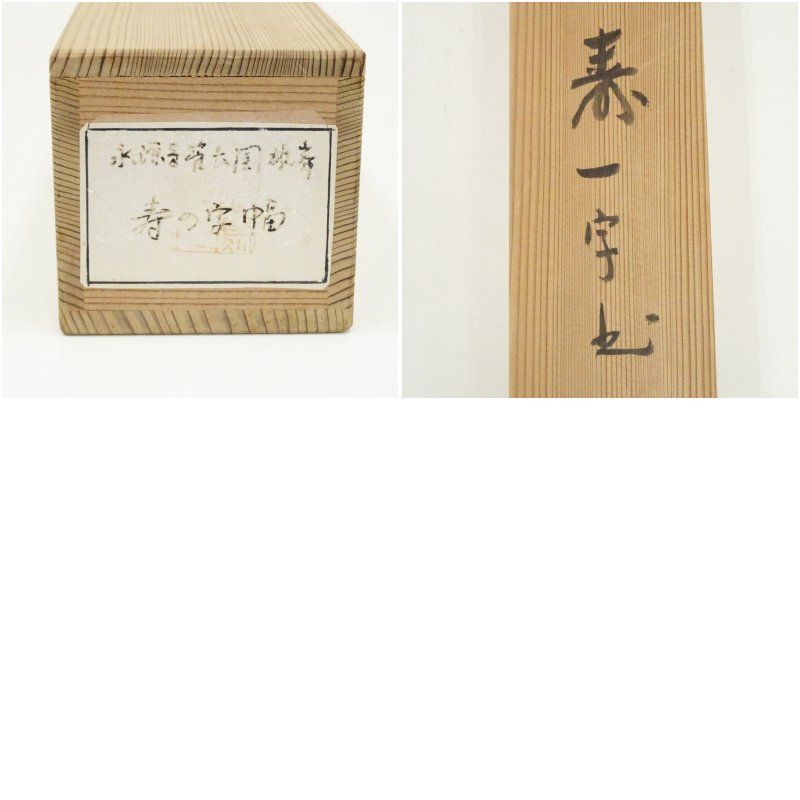 永源寺管長関雄峰
寿の字幅
寿一字書